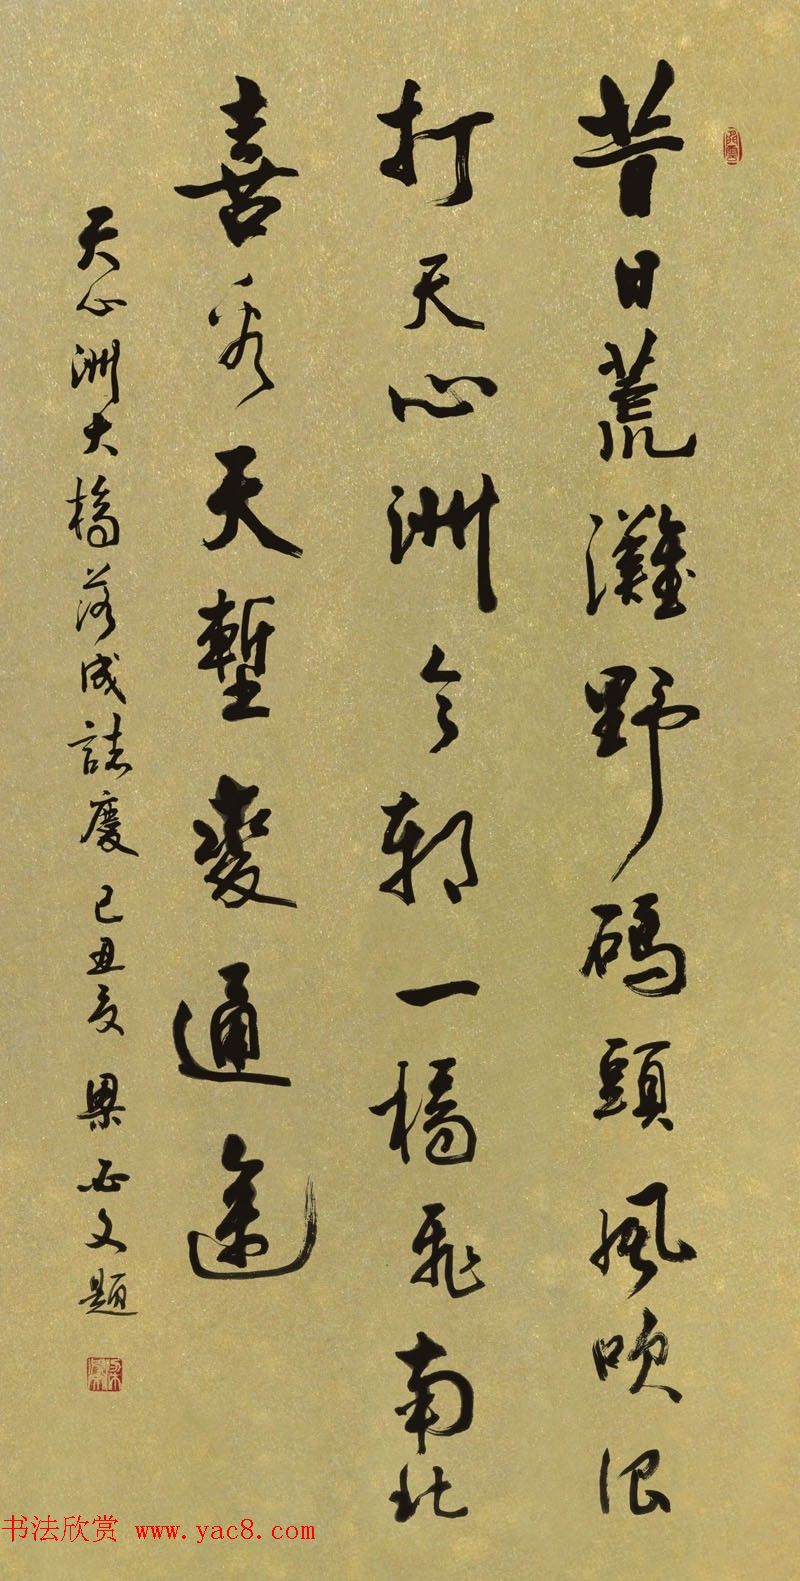 昔日荒灘野碼頭風吹浪
打天心洲今朝一橋飛南北
喜看天塹變通途
天心洲大橋落成誌慶 己丑夏 梁必文題
书法欣赏 www.yac8.com